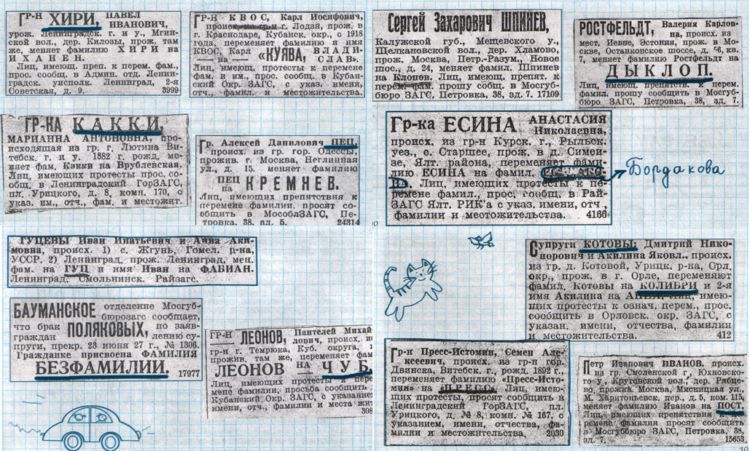 Гр-н ХИРИ, ПАВЕЛ
ИВАНОВИЧ,
урож. Ленинградск. г. и у., Мгин-
ской вол., дер. Килози, прож. там
же, меняет фамилию ХИРИ на
ИХАНЕН.
Лиц, имеющ. преп. к перем. фам.,
прос. сообщ. в Админ. отд. Ленин-
градск. уисполк. Ленинград, 2-я
Советская, д. 9. 3999
Гр-н КВОС, Карл Иосифович,
происх. из гр-н г. Лодзи, прож. в
г. Краснодаре, Кубанск. окр., с 1918
года, переменяет фамилию и имя
КВОС, Карл
на „КУЯВА, ВЛАДИ-
СЛАВ"
Лиц, имеющ. протесты к перемен
фам. и им., прос. сообщ. в Кубан-
ский Окр. ЗАГС, с указ. имени,
отч., фамил. и местожительства.
Сергей Захарович ШПИНЕВ,
Калужской губ., Мещевского у.,
Щелкановской вол., дер. Хламово,
прож. Москва, Петр.-Разум., Новое
шос., д. 24, меняет фамил. Шпинев
на Клопов. Лиц, имеющ. препят. к
перем. фам. прошу сообщ. в Мосгуб-
бюро ЗАГС, Петровка, 38, зд. 7. 17109
РОСТФЕЛЬДТ, Валерия Карлов-
на, происх. из
мест. Иевве, Эстония, прож. в Мо-
скве, Останкинское шоссе, д. 56, кв.
7, меняет фамилию Ростфельдт на
ДЫКЛОП.
Лиц, имеющ. препятств. к перем.
фамил., прошу сообщить в Мосгуб-
бюро ЗАГС, Петровка, 38, зд. 7.
ГР-КА КАККИ,
МАРИАННА АНТОНОВНА, про-
исходящая из гр. г. Лютина Ви-
тебск. г. и у. 1882 г. рожд. мо-
няет фам. Какки на Врублевская.
Лиц, имеющих протесты прос. со-
общ. в Ленинградский ГорЗАГС,
пл. Урицкого, д. 8, комн. 170, с
указ. им., отч., фам. и местожит.
Гр. Алексей Данилович ПЕЦ,
происх. из гр. гор. Одессы,
прожив. г. Москва, Неглинная
ул., д. 15. меняет фамилию
ПЕЦ
на КРЕМНЕВ.
Лиц, имеющих препятствия к
перемене фамилии, просят со-
общить в МособлЗАГС, Пе-
тровка, 38, зд. 5. 24814
Гр-ка ЕСИНА АНАСТАСИЯ
Николаевна,
происх. из гр-н Курск. г., Рыльск.
уез., с. Старшее, прож. в д. Симеи-
зе, Ялт. района, переменяет фами-
лию ЕСИНА на фамил.
Лиц, имеющих протесты к пе-
ремене фамил., прос. сообщ. в Рай-
ЗАГС Ялт. РИК'а с указ. имени, отч.,
фамилии и местожительства. 4166
Бордакова
ГУЦЕВЫ Иван Ипатьевич и Анна Аки-
мовна, происх. 1) с. Жгунь, Гомел. р-на,
УССР. 2) Ленинград, прож. Ленинград, мен.
фам. на ГУЦ и имя Иван на ФАБИАН.
Ленинград, Смольнинск. Райзагс.
Супруги КОТОВЫ, Дмитрий Нико-
норович и Акилина Яковл., происх.
из гр. д. Котовой, Урицк. р-на, Орл.
окр., прож. в г. Орле, переменяют
фамил. Котовы на КОЛИБРИ и 2-я
имя Акилина на
имеющ. протесты к означ. перем., прос.
сообщить в Орловск. окр. ЗАГС, с
указан. имени, отчества, фамилии
и местожительства. 412
БАУМАНСКОЕ отделение Мосгуб-
бюрозагс сообщает,
что брак ПОЛЯКОВЫХ, по заяв-
граждан лению су-
пруги, прекр. 23 июня 27 г., № 1306.
Гражданке присвоена ФАМИЛИЯ
БЕЗФАМИЛИИ. 17977
ГР-Н ЛЕОНОВ, Пантелей Михай-
лович, происх. из
гр-н г. Темрюка, Куб. округа,
прожив. там же, переменяет фам.
ЛЕОНОВ НА ЧУВ.
Лиц, имеющих протесты к пере-
мене фамилии, просьба сообщить в
Кубанский Окр. ЗАГС, с указанием
имени, отч., фамилии и места жит.
Гр-н Пресс-Истомин, Семен Але-
ксеевич, происх. из гр-н гор.
Двинска, Витебск. г., рожд. 1892 г.,
переменяет фамилию «Пресс-Исто-
мин» на «ПРЕСС». Лиц, имею-
щих протесты, просят сообщить в
Ленинградский ГорЗАГС, пл.
Урицкого, д. № 8, комн. № 167, с
указанием, имени, отчества, фа-
милии и местожительства. 2030
Петр Иванович ИВАНОВ, происх.
из гр. Смоленской г., Юхновско-
го у., Крутовской вол., дер.
прожив. Москва, Мясницкая ул.,
М. Харитоньевск. пер., д. 5, ком. 115,
меняет фамилию Иванов на ПОСТ.
Лиц, имеющих препятствия к
перемене фамилии просят сообщить
в Мосгуббюро ЗАГС, Петровка, 38,
зд. 7. 15653